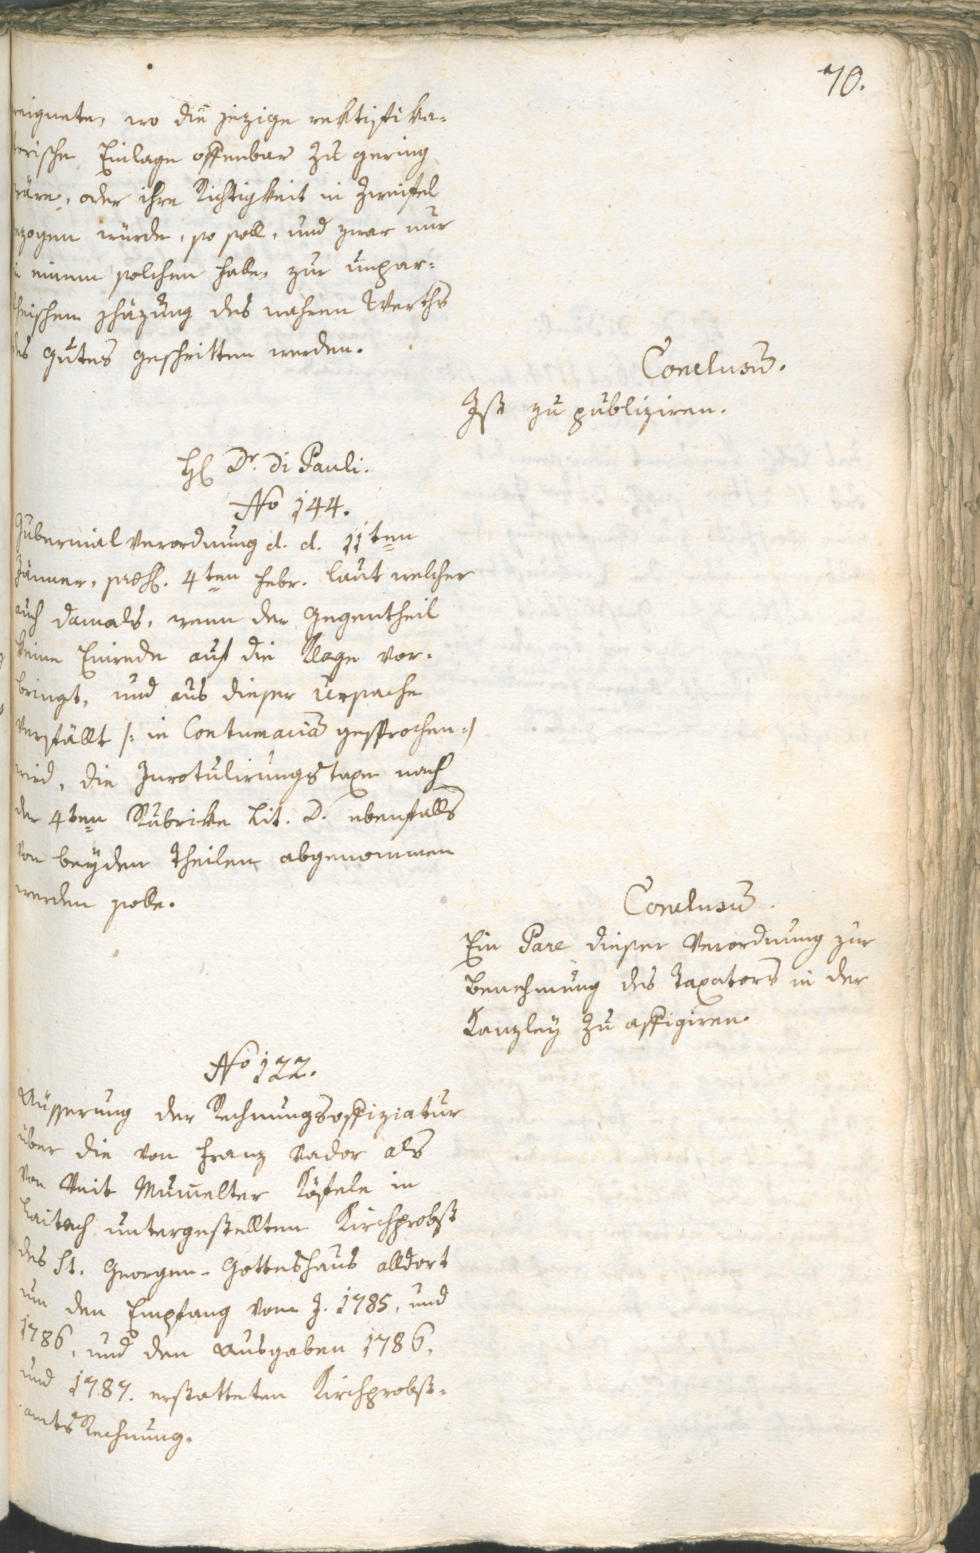 70.
eignete, wo die jezige rektifika-
torische Einlage offenbar zu gering
wäre, oder ihre Richtigkeit in Zweifel
gezogen würde, so soll, und zwar nur
in einem solchen Falle, zur unpar-
theyischen Schäzung des wahren Werths
des Gutes geschritten werden.
Conclusum.
Ist zu publiziren.
H Dr. Di Pauli.
No 144.
Gubernial Verordnung d. d. 11ten
Jänner, praes. 4ten Febr. laut welcher
auch damals, wenn der Gegentheil
keine Einrede auf die Klage vor-
bringt, und aus dieser Ursache
verfällt /: in Contumaciam gesprochen :/
wird, die Inrotulirungstaxe nach
der 4ten Rubricke Lit. D. ebenfalls
von beyden Theilen abgenommen
werden solle.
Conclusum.
Ein Pare dieser Verordnung zur
Benehmung des Taxators in der
Kanzley zu affigiren.
No 122.
Äusserung der Rechnungsoffiziatur
über die von Franz Nador als
von Veit Mumelter Köfele in
Laitach untergestellten Kirchprobst
des St. Georgen-Gotteshaus alldort
um den Empfang vom J. 1785, und
1786, und den Ausgaben 1786,
und 1787. erstatteten Kirchprobst-
amts Rechnung.